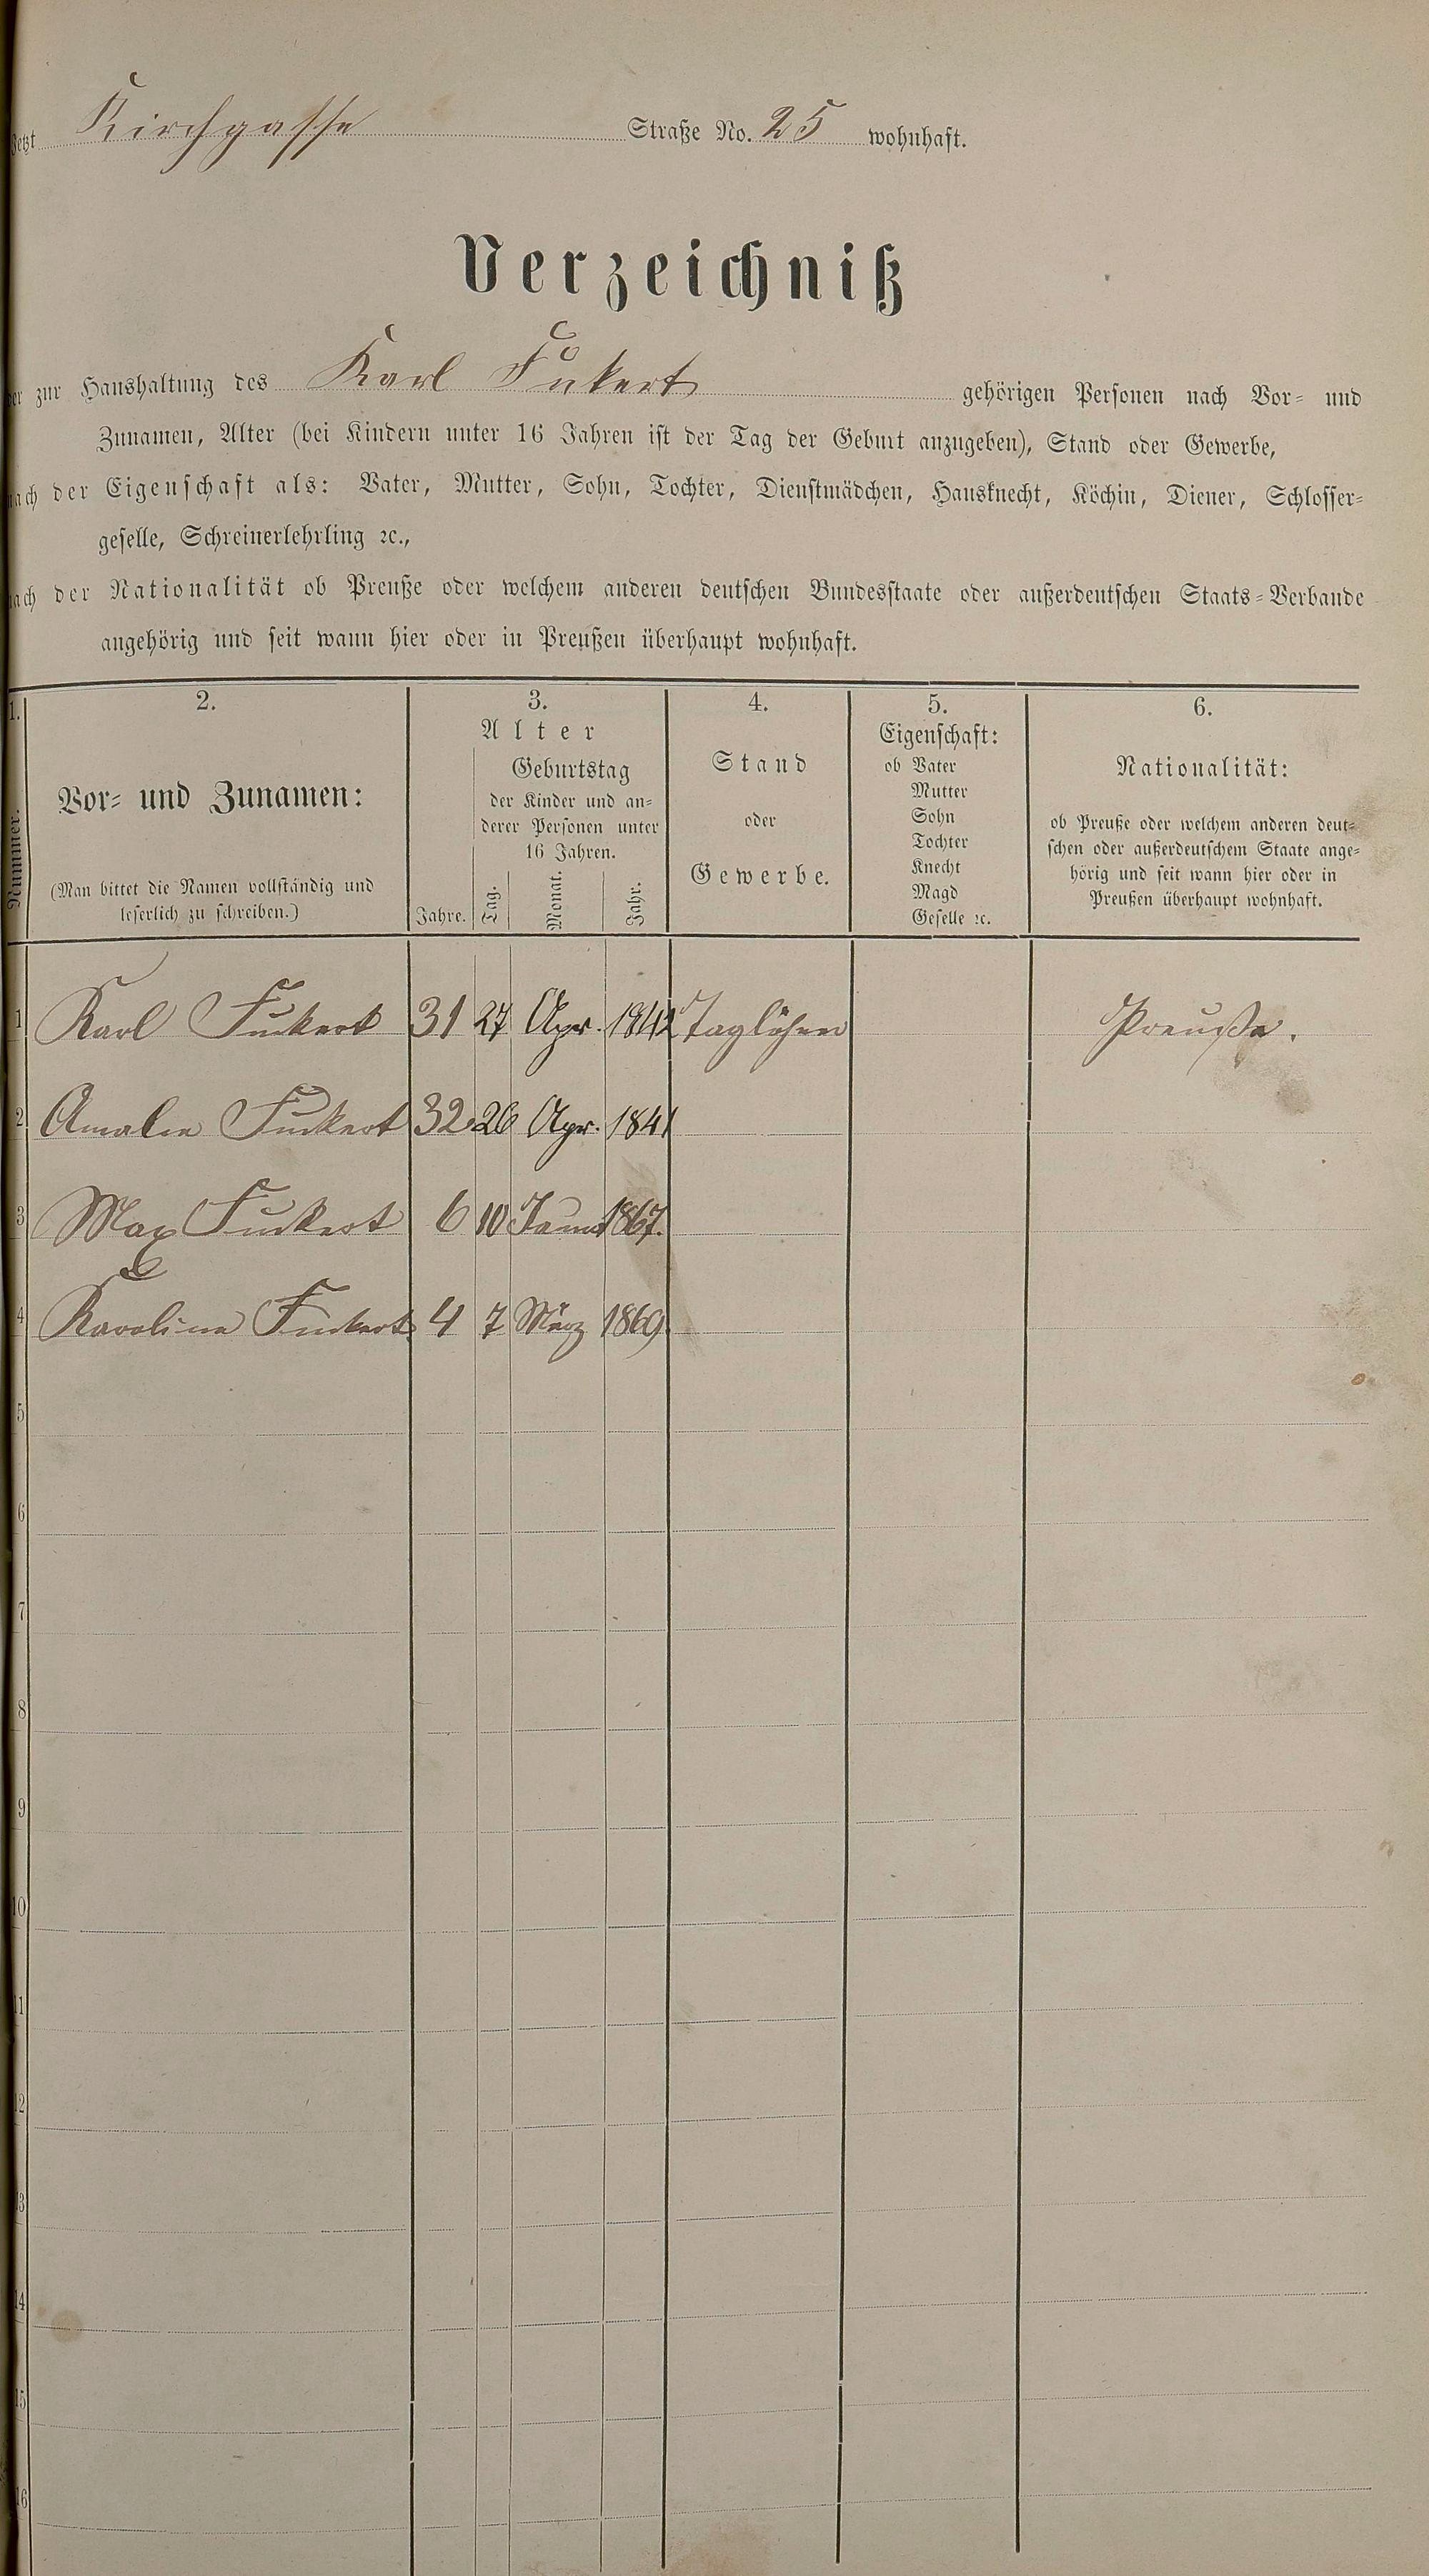 Jetzt Kirchgasse Straße No. 25 wohnhaft.
Verzeichniß
der zur Haushaltung des Karl Fukert gehörigen Personen nach Vor- und
Zunamen, Alter (bei Kindern unter 16 Jahren ist der Tag der Geburt anzugeben), Stand oder Gewerbe,
nach der Eigenschaft als: Vater, Mutter, Sohn, Tochter, Dienstmädchen, Hausknecht, Köchin, Diener, Schlosser-
geselle, Schreinerlehrling ꝛc.,
nach der Nationalität ob Preuße oder welchem anderen deutschen Bundesstaate oder außerdeutschen Staats-Verbande
angehörig und seit wann hier oder in Preußen überhaupt wohnhaft.
1.
Nummer.
2.
Vor- und Zunamen:
(Man bittet die Namen vollständig und
leserlich zu schreiben.)
3.
Alter
Geburtstag
der Kinder und an-
derer Personen unter
16 Jahren.
Jahre. Tag. Monat. Jahr.
4.
Stand
oder
Gewerbe.
5.
Eigenschaft:
ob Vater
Mutter
Sohn
Tochter
Knecht
Magd
Geselle ꝛc.
6.
Nationalität:
ob Preuße oder welchem anderen deut-
schen oder außerdeutschem Staate ange-
hörig und seit wann hier oder in
Preußen überhaupt wohnhaft.
1 Karl Fuckert 31 27 Apr. 1842 Taglöhner Preuße.
2 Amalie Fuckert 32 26 Apr. 1841
3 Max Fuckert 6 10 1867.
4 Karolina Fuckert 4 7 März 1869
5
6
7
8
9
10
11
12
13
14
15
16